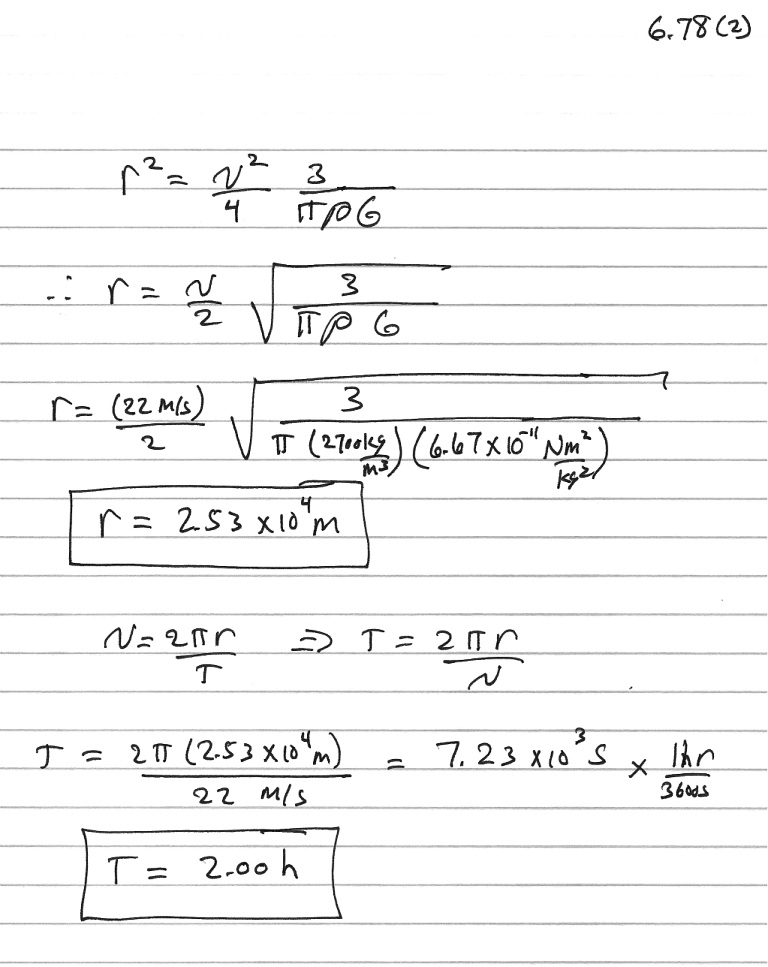 6.78(2)
r² = v²/4 3/πρG
∴ r = v/2 √(3/πρG)
r = (22 m/s)/2 √(3/π(2700 kg/m³)(6.67×10⁻¹¹ Nm²/kg²))
r = 2.53 ×10⁴ m
v = 2πr/T ⇒ T = 2πr/v
T = 2π(2.53×10⁴ m)/22 m/s = 7.23 ×10³ s × 1hr/3600s
T = 2.00 h